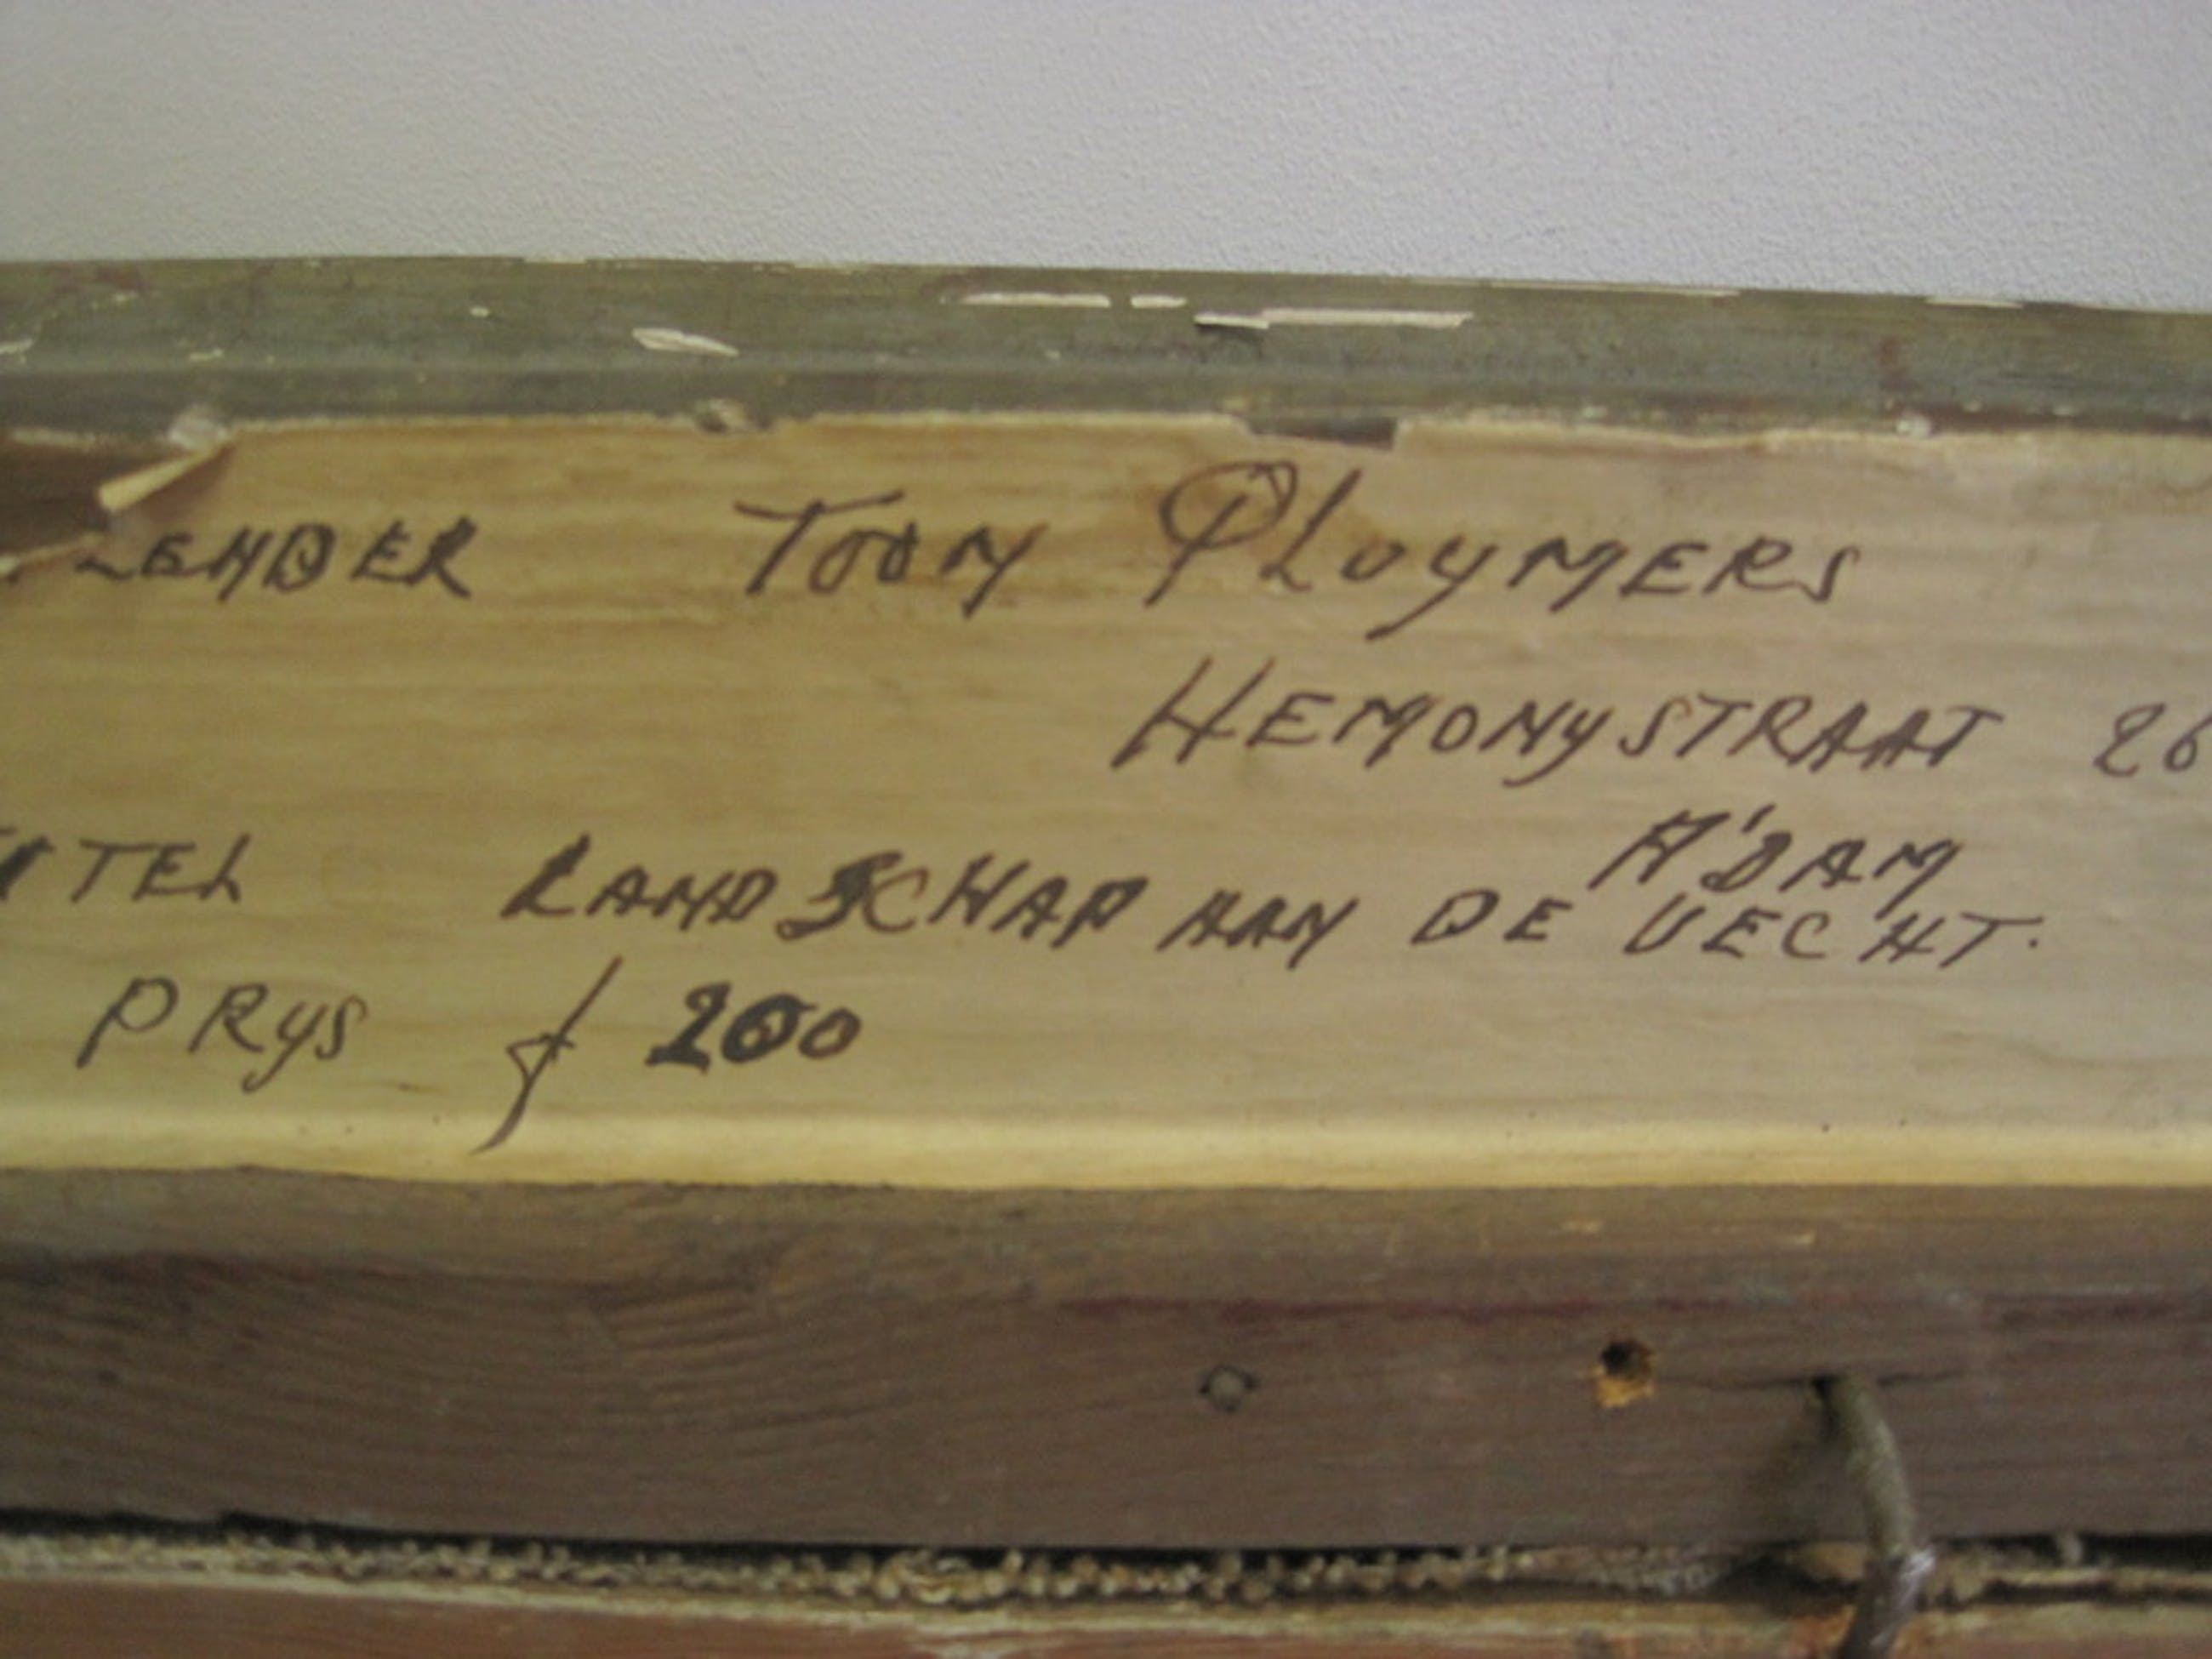 LENDER TOON PLUYMERS
HEMONYSTRAAT 26
A'DAM
TITEL LANDSCHAP AAN DE VECHT.
PRYS f 200